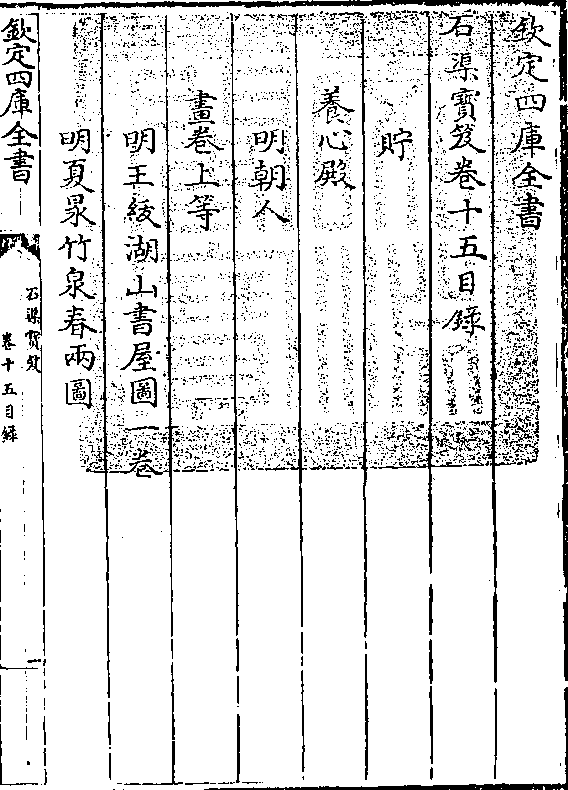 欽定四庫全書
石渠寶笈卷十五目錄
貯
養心殿
明朝人
畫卷上等
明王紱湖山書屋圖一卷
明夏㫤竹泉春雨圖
欽定四庫全書
石渠寶笈
卷十五目錄
一